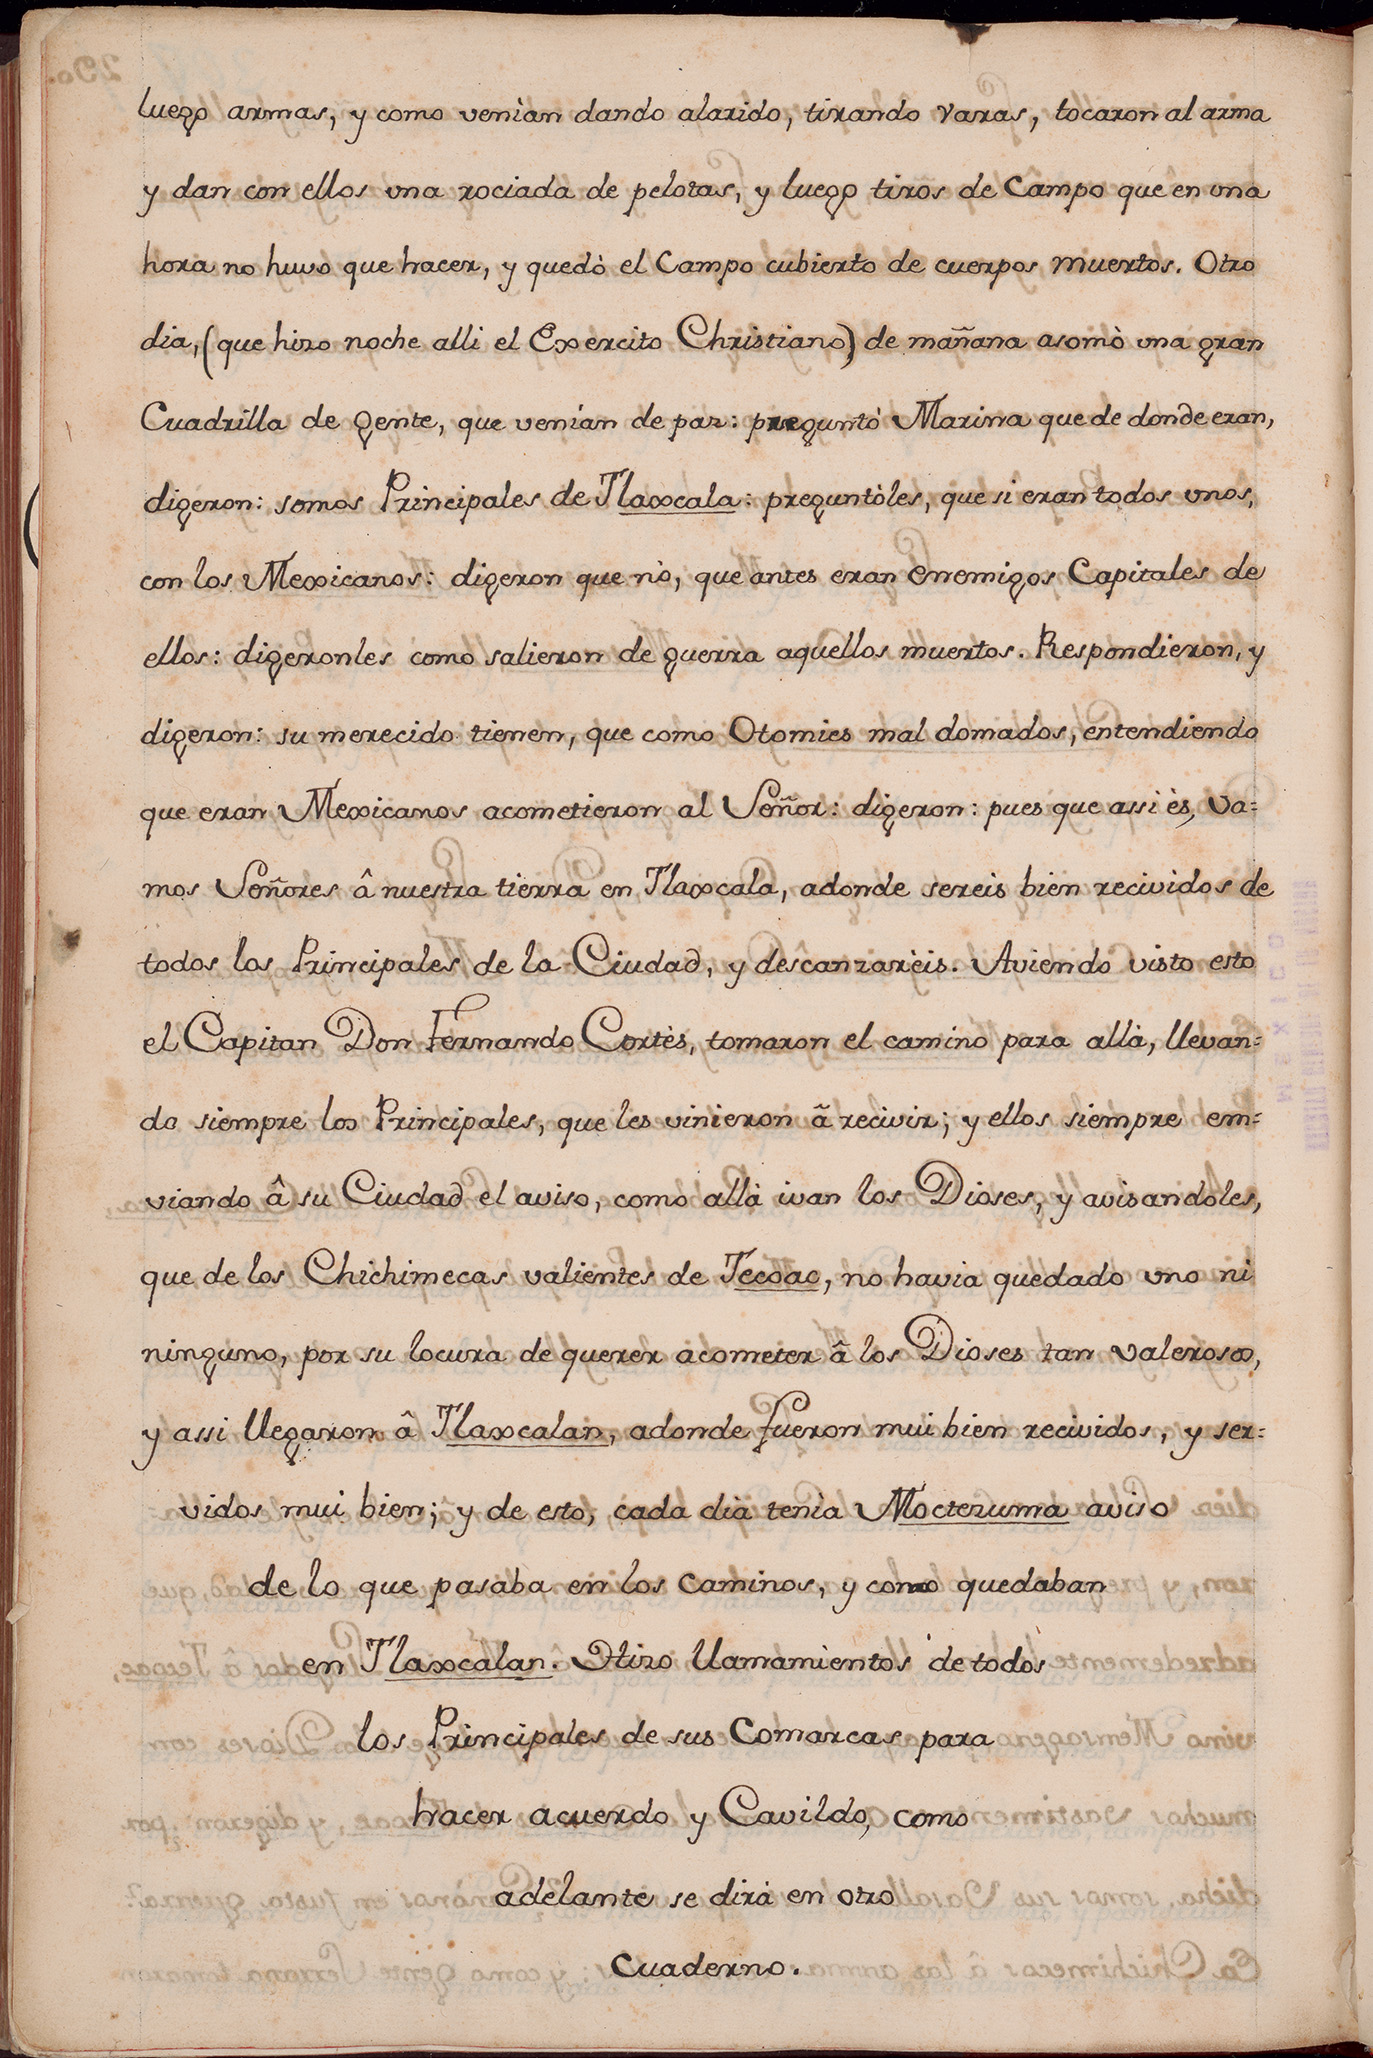 luego armas, y como venìan dando alarido, tirando varas, tocaron al arma
y dan con ellos una rociada de pelotas, y luego tiros de Campo que en una
hora no huvo que hacer, y quedò el Campo cubierto de cuerpos muertos. Otro
dia, (que hizo noche alli el Exercito Christiano) de mañana asomò una gran
Cuadrilla de gente, que venían de paz: preguntò Marina que de donde eran,
digeron: somos Principales de Tlaxcala: preguntòles, que si eran todos unos,
con los Mexicanos: digeron que nò, que antes eran Enemigos Capitales de
ellos: digeronles como salieron de guerra aquellos muertos. Respondieron, y
digeron: su merecido tienen, que como Otomies mal domados, entendiendo
que eran Mexicanos acometieron al Señor: digeron: pues que assi ès, va=
mos Señores â nuestra tierra en Tlaxcala, adonde sereis bien recividos de
todos los Principales de la Ciudad, y descanzarèis. Aviendo visto esto
el Capitan Don Fernando Cortès, tomaron el camino para allà, llevan=
do siempre los Principales, que les vinieron ã recivir; y ellos siempre em=
viando â su Ciudad el aviso, como allà ivan los Dioses, y avisandoles,
que de los Chichimecas valientes de Tecoac, no havia quedado uno ni
ninguno, por su locura de querer acometer â los Dioses tan valerosos,
y assi llegaron â Tlaxcalan, adonde fueron mui bien recividos, y ser=
vidos mui bien; y de esto, cada dià tenìa Moctezuma aviso
de lo que pasaba en los caminos, y como quedaban
en Tlaxcalan. Hizo llamamientos de todos
los Principales de sus Comarcas para
hacer acuerdo y Cavildo, como
adelante se dirà en otro
Cuaderno.